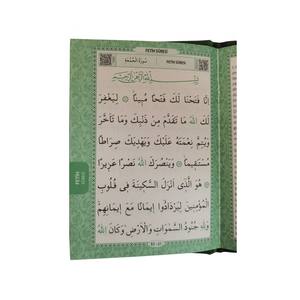 FETİH SÛRESİ
FETİH SÛRESİ
بِسْمِ اللّٰهِ الرَّحْمٰنِ الرَّحِيمِ
اِنَّا فَتَحْنَا لَكَ فَتْحًا مُبِينًا ۞ لِيَغْفِرَ
لَكَ اللّٰهُ مَا تَقَدَّمَ مِنْ ذَنْبِكَ وَمَا تَاَخَّرَ
وَيُتِمَّ نِعْمَتَهُ عَلَيْكَ وَيَهْدِيَكَ صِرَاطًا
مُسْتَقِيمًا ۞ وَيَنْصُرَكَ اللّٰهُ نَصْرًا عَزِيزًا
۞ هُوَ الَّذِى اَنْزَلَ السَّكِينَةَ فِى قُلُوبِ
الْمُؤْمِنِينَ لِيَزْدَادُوا اِيمَانًا مَعَ اِيمَانِهِمْ
وَلِلّٰهِ جُنُودُ السَّمٰوَاتِ وَالْاَرْضِ وَكَانَ اللّٰهُ
FETİH